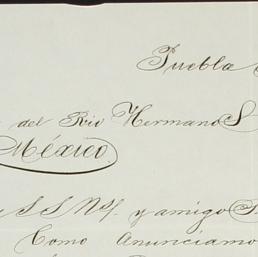 Puebla
del Rio Hermano S
México
S S Ns/. y amigo
Como Anunciamo